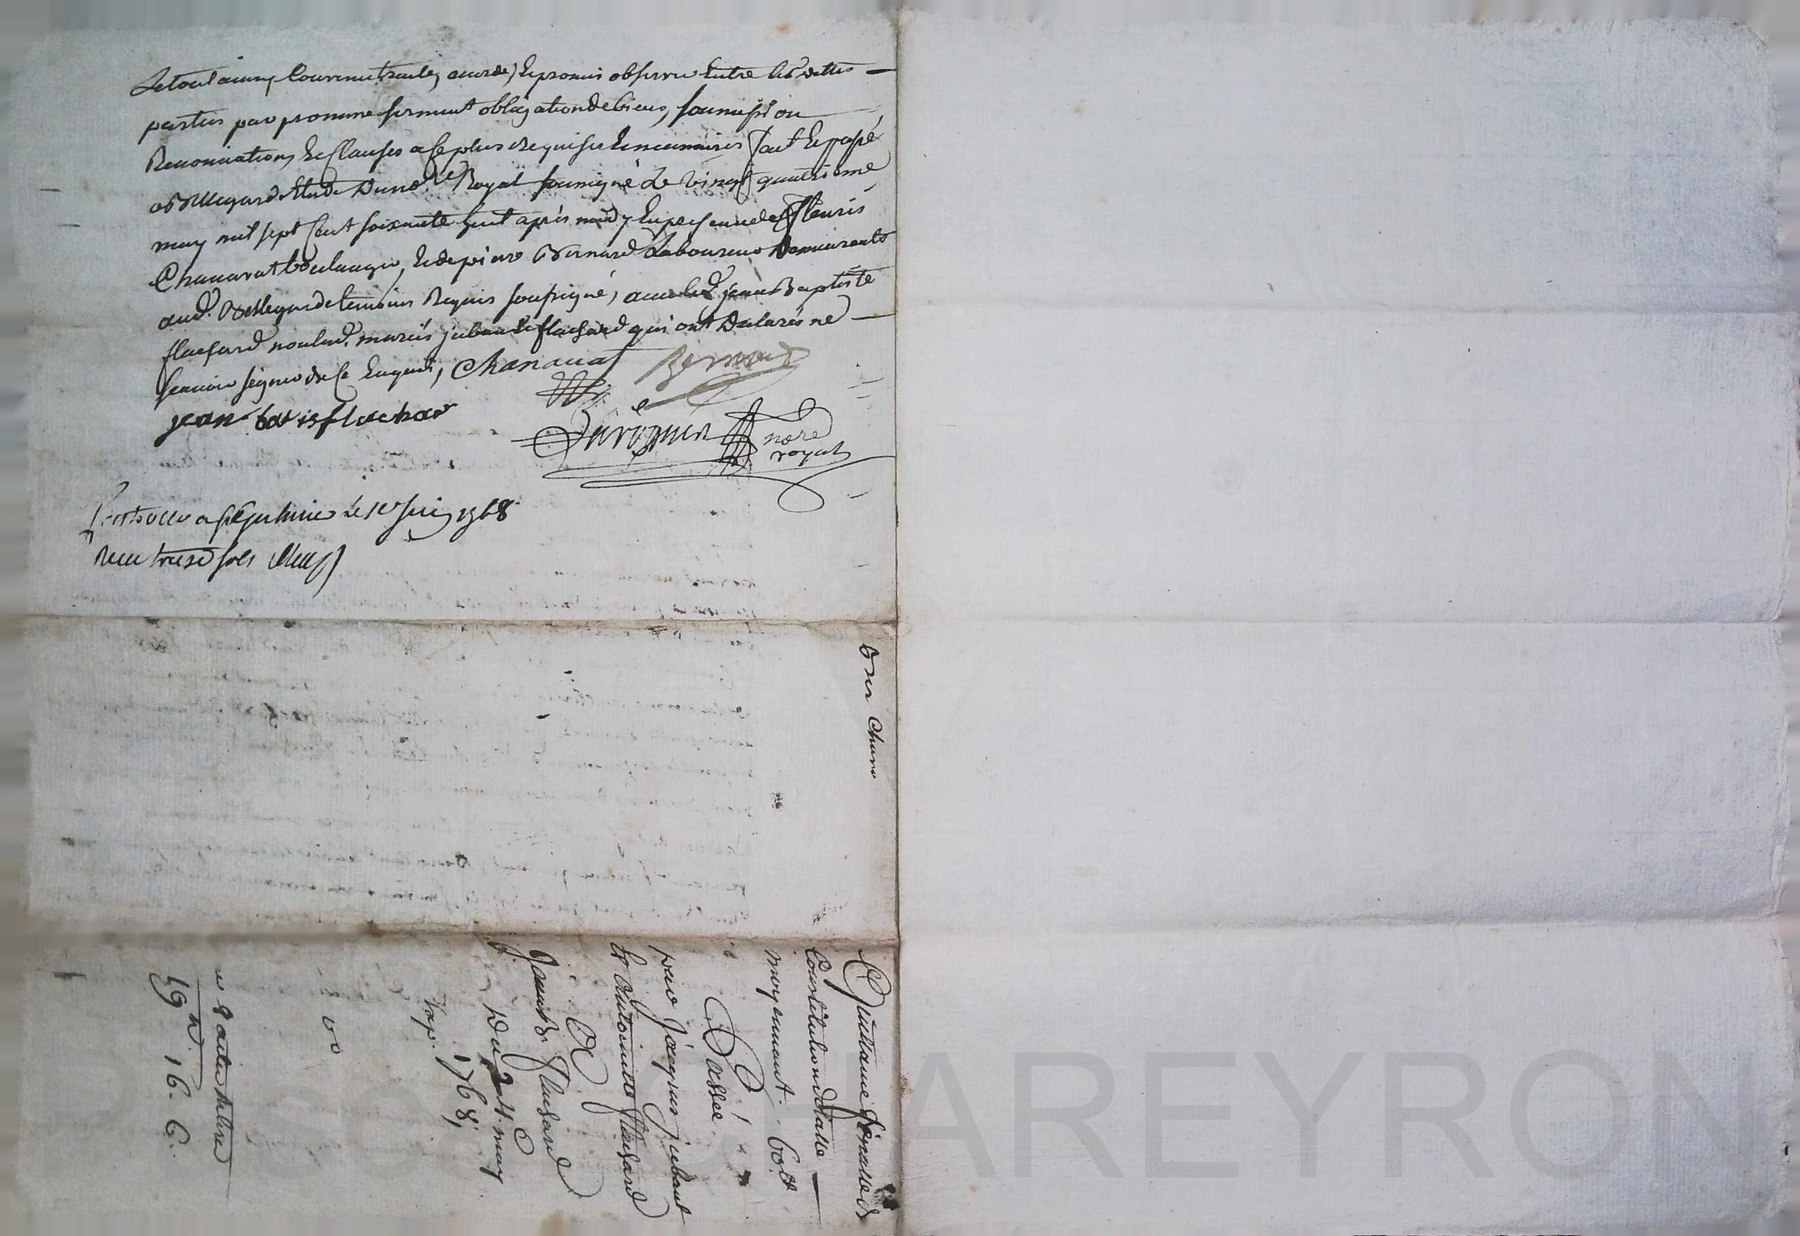 Le tout ainsy Convenu traitté, accordé, Et promis observer Entre lesdittes
parties par promesse serment obligation de biens, soumission
Renonciations, Et Clauses a ce plus Requises Et necessaires fait Et passé
a Bellegarde Etude Du no.re Royal soussigné le vingt quatrieme
may mil sept Cent soixante huit après midy En presence de fleuris
Chanavat boulanger, Et de pierre Bernard Laboureur Demeurants
aud. Bellegarde temoins Requis soussignés, avec led. jean Baptiste
flachard non lesd. mariés jubaut Et flachard qui ont Declarés ne
sçavoir signer de Ce Enquis,
Chanavat Bernard
jean batis flachar
nore
royal
le 1er juin 1768
Reçu treize sols
Quittance
Constitution dotalle
moyennant 60
Passee
par Jacques jubaut
Et antoinette flachard
A
Jean B. flachard
Du 24 may
1768,
Exp.
19 16. 6.
CHAREYRON